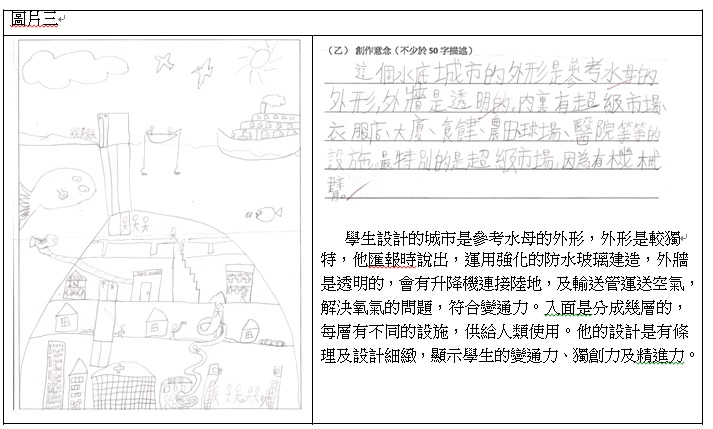 圖片三
(乙) 創作意念(不少於 50 字描述)
這個水底城市的外形是參考水母的
外形,外牆是透明的,內裏有超級市場、
衣服店、大廈、食肆、農田、球場、醫院等等的
設施。最特別的是超級市場,因為有機械
臂。
學生設計的城市是參考水母的外形，外形是較獨
特，他匯報時說出，運用強化的防水玻璃建造，外牆
是透明的，會有升降機連接陸地，及輸送管運送空氣，
解決氧氣的問題，符合變通力。入面是分成幾層的，
每層有不同的設施，供給人類使用。他的設計是有條
理及設計細緻，顯示學生的變通力、獨創力及精進力。